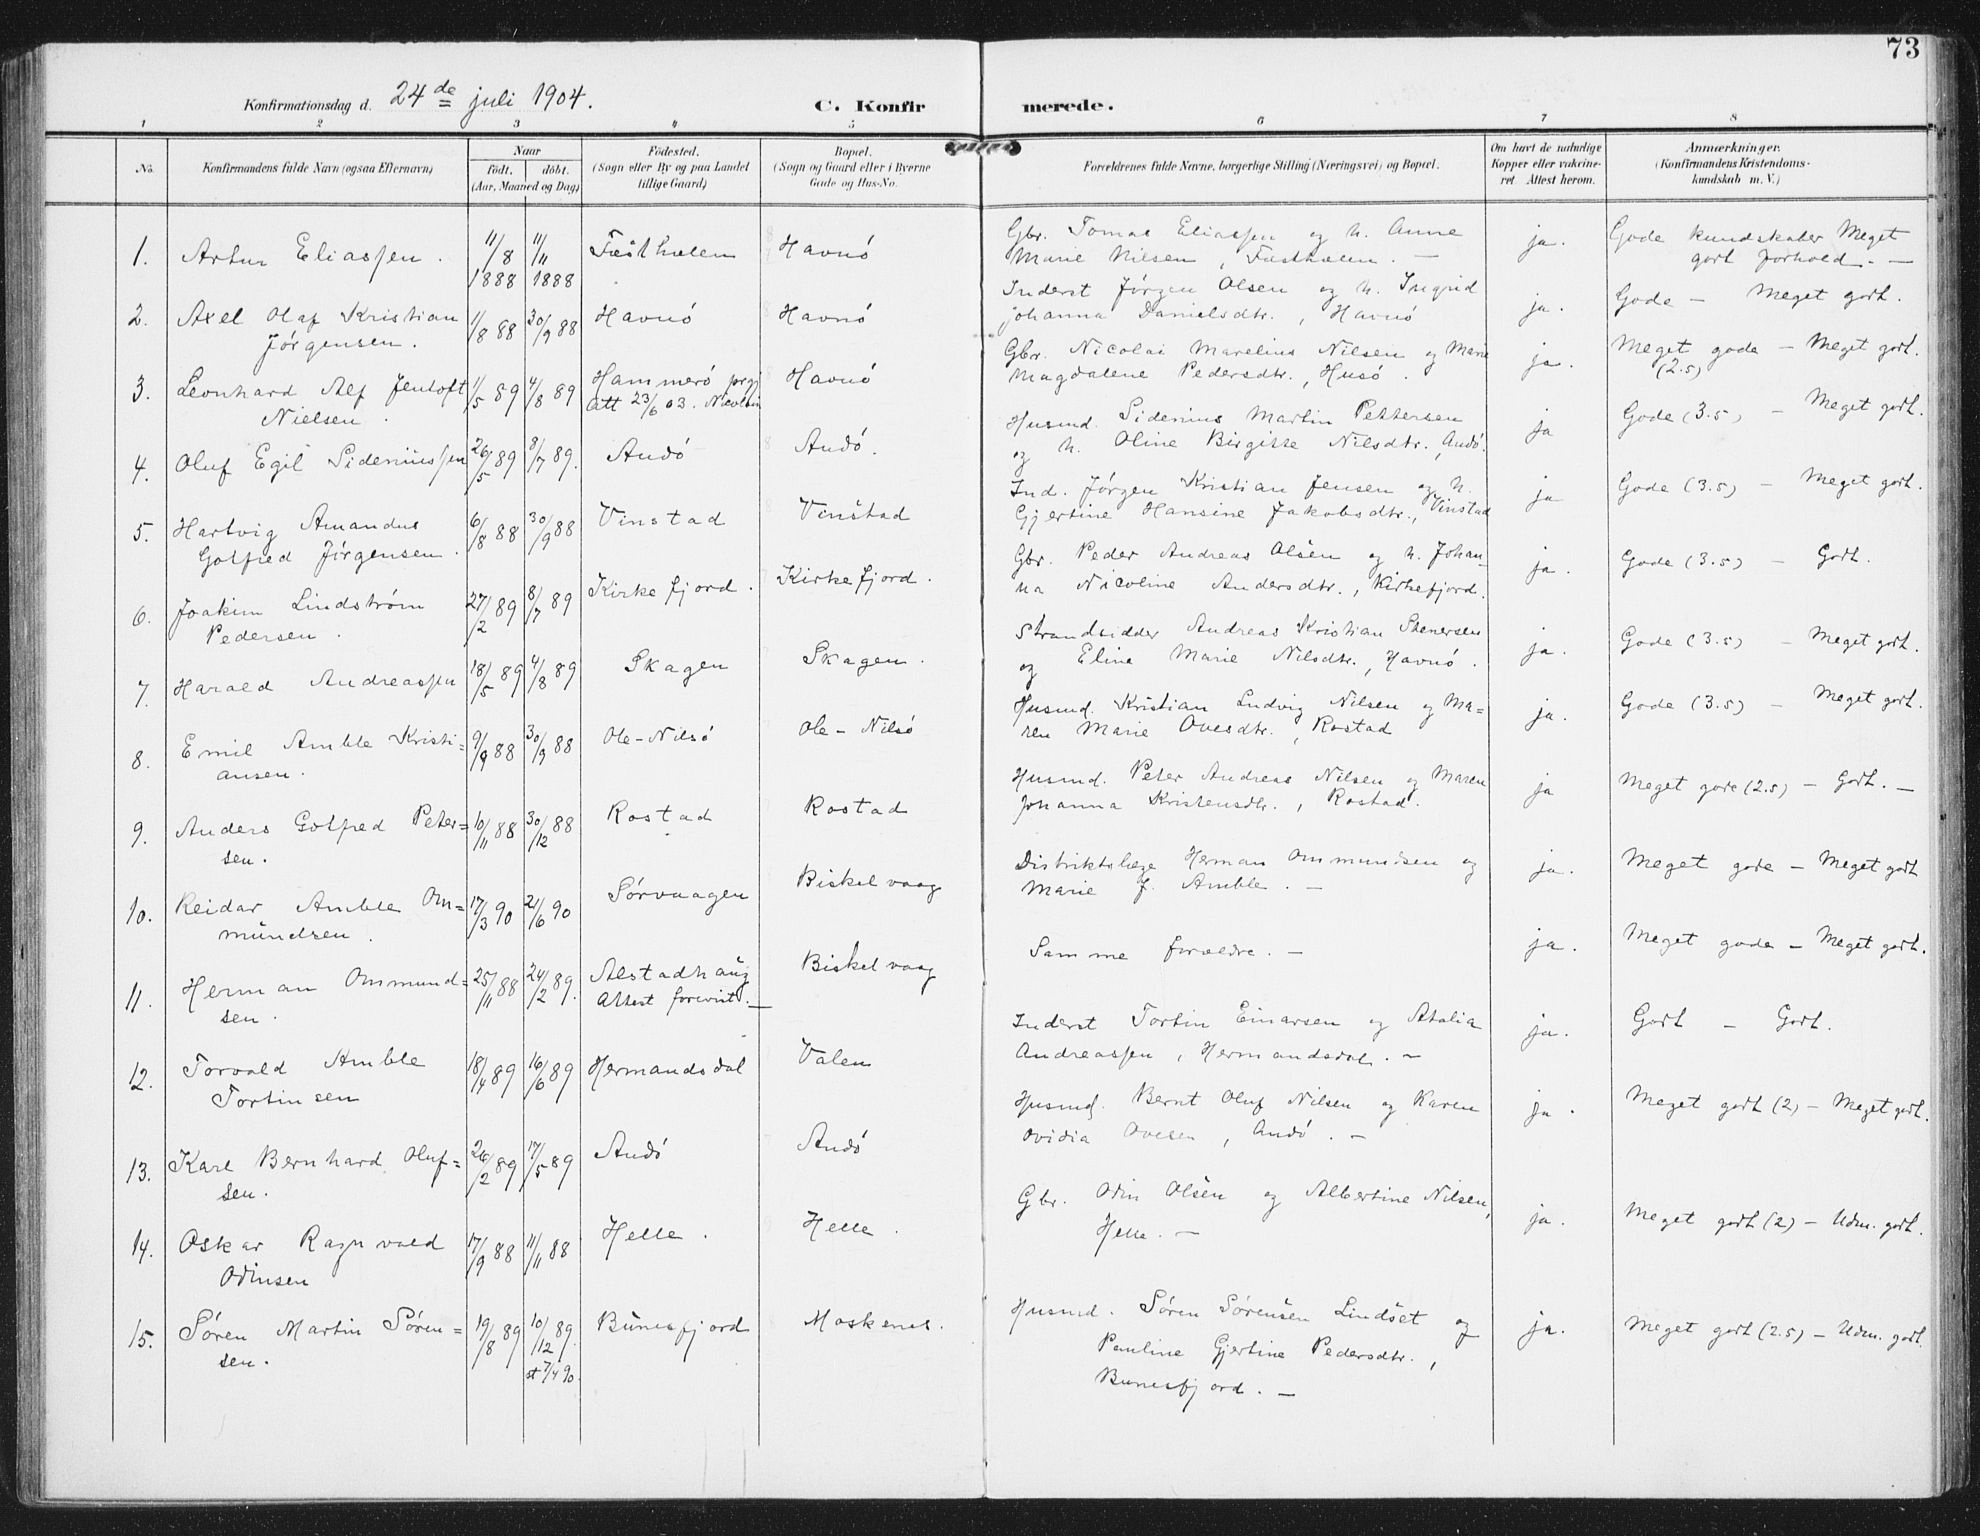 73
Konfirmationsdag d. 24de juli 1904.
C. Konfirmerede.
1 2 3 4 5 6 7 8
No.
Konfirmandens fulde Navn (ogsaa Efternavn)
Naar
født. døbt.
(Aar, Maaned og Dag)
Fødested.
(Sogn eller By og paa Landet
tillige Gaard)
Bopæl.
(Sogn og Gaard eller i Byerne
Gade og Hus-No.
Forældrenes fulde Navne, borgerlige Stilling (Næringsvei) og Bopæl.
Om havt de naturlige
Kopper eller vakcine-
ret. Attest herom.
Anmærkninger.
(Konfirmandens Kristendoms-
kundskab m. V.)
1. Artur Eliassen. 11/8 1888 11/11 1888 Festhælen Havnö
Gbr. Tomas Eliassen og h. Anne
Marie Nilsen, Festhælen. —
ja.
Gode kundskaber Meget
godt forhold. —
2. Axel Olaf Kristian
Jörgensen.
11/8 88 30/9 88 Havnö Havnö
Inderst Jörgen Olsen og h. Ingrid
Johanna Danielsdtr., Havnö
ja. Gode — Meget godt.
3. Leonhard Alf Jentoft
Nielsen.
11/5 89 4/8 89 Hammerö prgj
Att 23/6 03. Havnö
Gbr. Nicolai Marelius Nilsen og Marie
Magdalene Pedersdtr., Husö.
ja. Meget gode — Meget godt.
(2.5)
4. Oluf Egil Sideniussen 26/5 89 8/7 89. Andö Andö.
Husmd. Sidenius Martin Pettersen
og h. Oline Birgitte Nilsdtr., Andö.
ja Gode (3.5) — Meget godt.
5. Hartvig Amandus
Gotfred Jörgensen.
6/8 88 30/9 88 Vinstad Vinstad
Ind. Jörgen Kristian Jensen og h.
Gjertine Hansine Jakobsdtr., Vinstad
ja Gode (3.5) — Meget godt.
6. Joakim Lindström
Pedersen.
27/2 89 8/7 89 Kirkefjord. Kirkefjord.
Gbr. Peder Andreas Olsen og h. Johan-
na Nicoline Andersdtr., Kirkefjord.
ja. Gode (3.5) — Godt.
7. Harald Andreassen 18/5 89 4/8 89 Skagen Skagen.
Strandsidder Andreas Kristian Stenersen
og Eline Marie Nilsdtr., Havnö.
ja. Gode (3.5) — Meget godt.
8. Emil Amble Kristi-
ansen.
9/9 88 30/9 88 Ole-Nilsö Ole-Nilsö
Husmd. Kristian Ludvig Nilsen og Ma-
ren Marie Ovesdtr., Rostad
ja. Gode (3.5) — Meget godt.
9. Anders Gotfred Peter-
sen.
10/11 88 30/12 88 Rostad Rostad
Husmd. Peter Andreas Nilsen og Maren
Johanna Kristensdtr., Rostad.
ja Meget gode (2.5) — Godt. —
10. Reidar Amble Om-
mundsen.
17/3 90 21/6 90 Sörvaagen Biskelvaag
Distriktslæge Herman Ommundsen og
Marie J. Amble. —
ja. Meget gode — Meget godt
11. Herman Ommund-
sen.
25/11 88 24/2 89. Alstadhaug
Attest forevist. — Biskelvaag
Samme forældre. —
ja. Meget gode — Meget godt.
12. Torvald Amble
Tortinsen
18/4 89 16/6 89 Hermandsdal Valen
Inderst Tortin Einarsen og Atalia
Andreassen, Hermandsdal. —
ja. Godt — Godt.
13. Karl Bernhard Oluf-
sen.
26/2 89 17/5 89 Andö Andö
Husmd. Bernt Oluf Nilsen og Karen
Ovidia Ovesen, Andö. —
ja. Meget godt (2) — Meget godt.
14. Oskar Ragnvald
Odinsen
17/9 88 11/11 88 Helle. Helle.
Gbr. Odin Olsen og Albertine Nilsen,
Helle. —
ja. Meget godt (2) — Udm. godt.
15. Sören Martin Sören-
sen.
19/8 89 10/12 89. Bunesfjord Moskenes.
st 7/4 90.
Husmd. Sören Sörensen Lindset og
Pauline Gjertine Pedersdtr.,
Bunesfjord. —
ja. Meget godt (2.5) — Udm. godt.